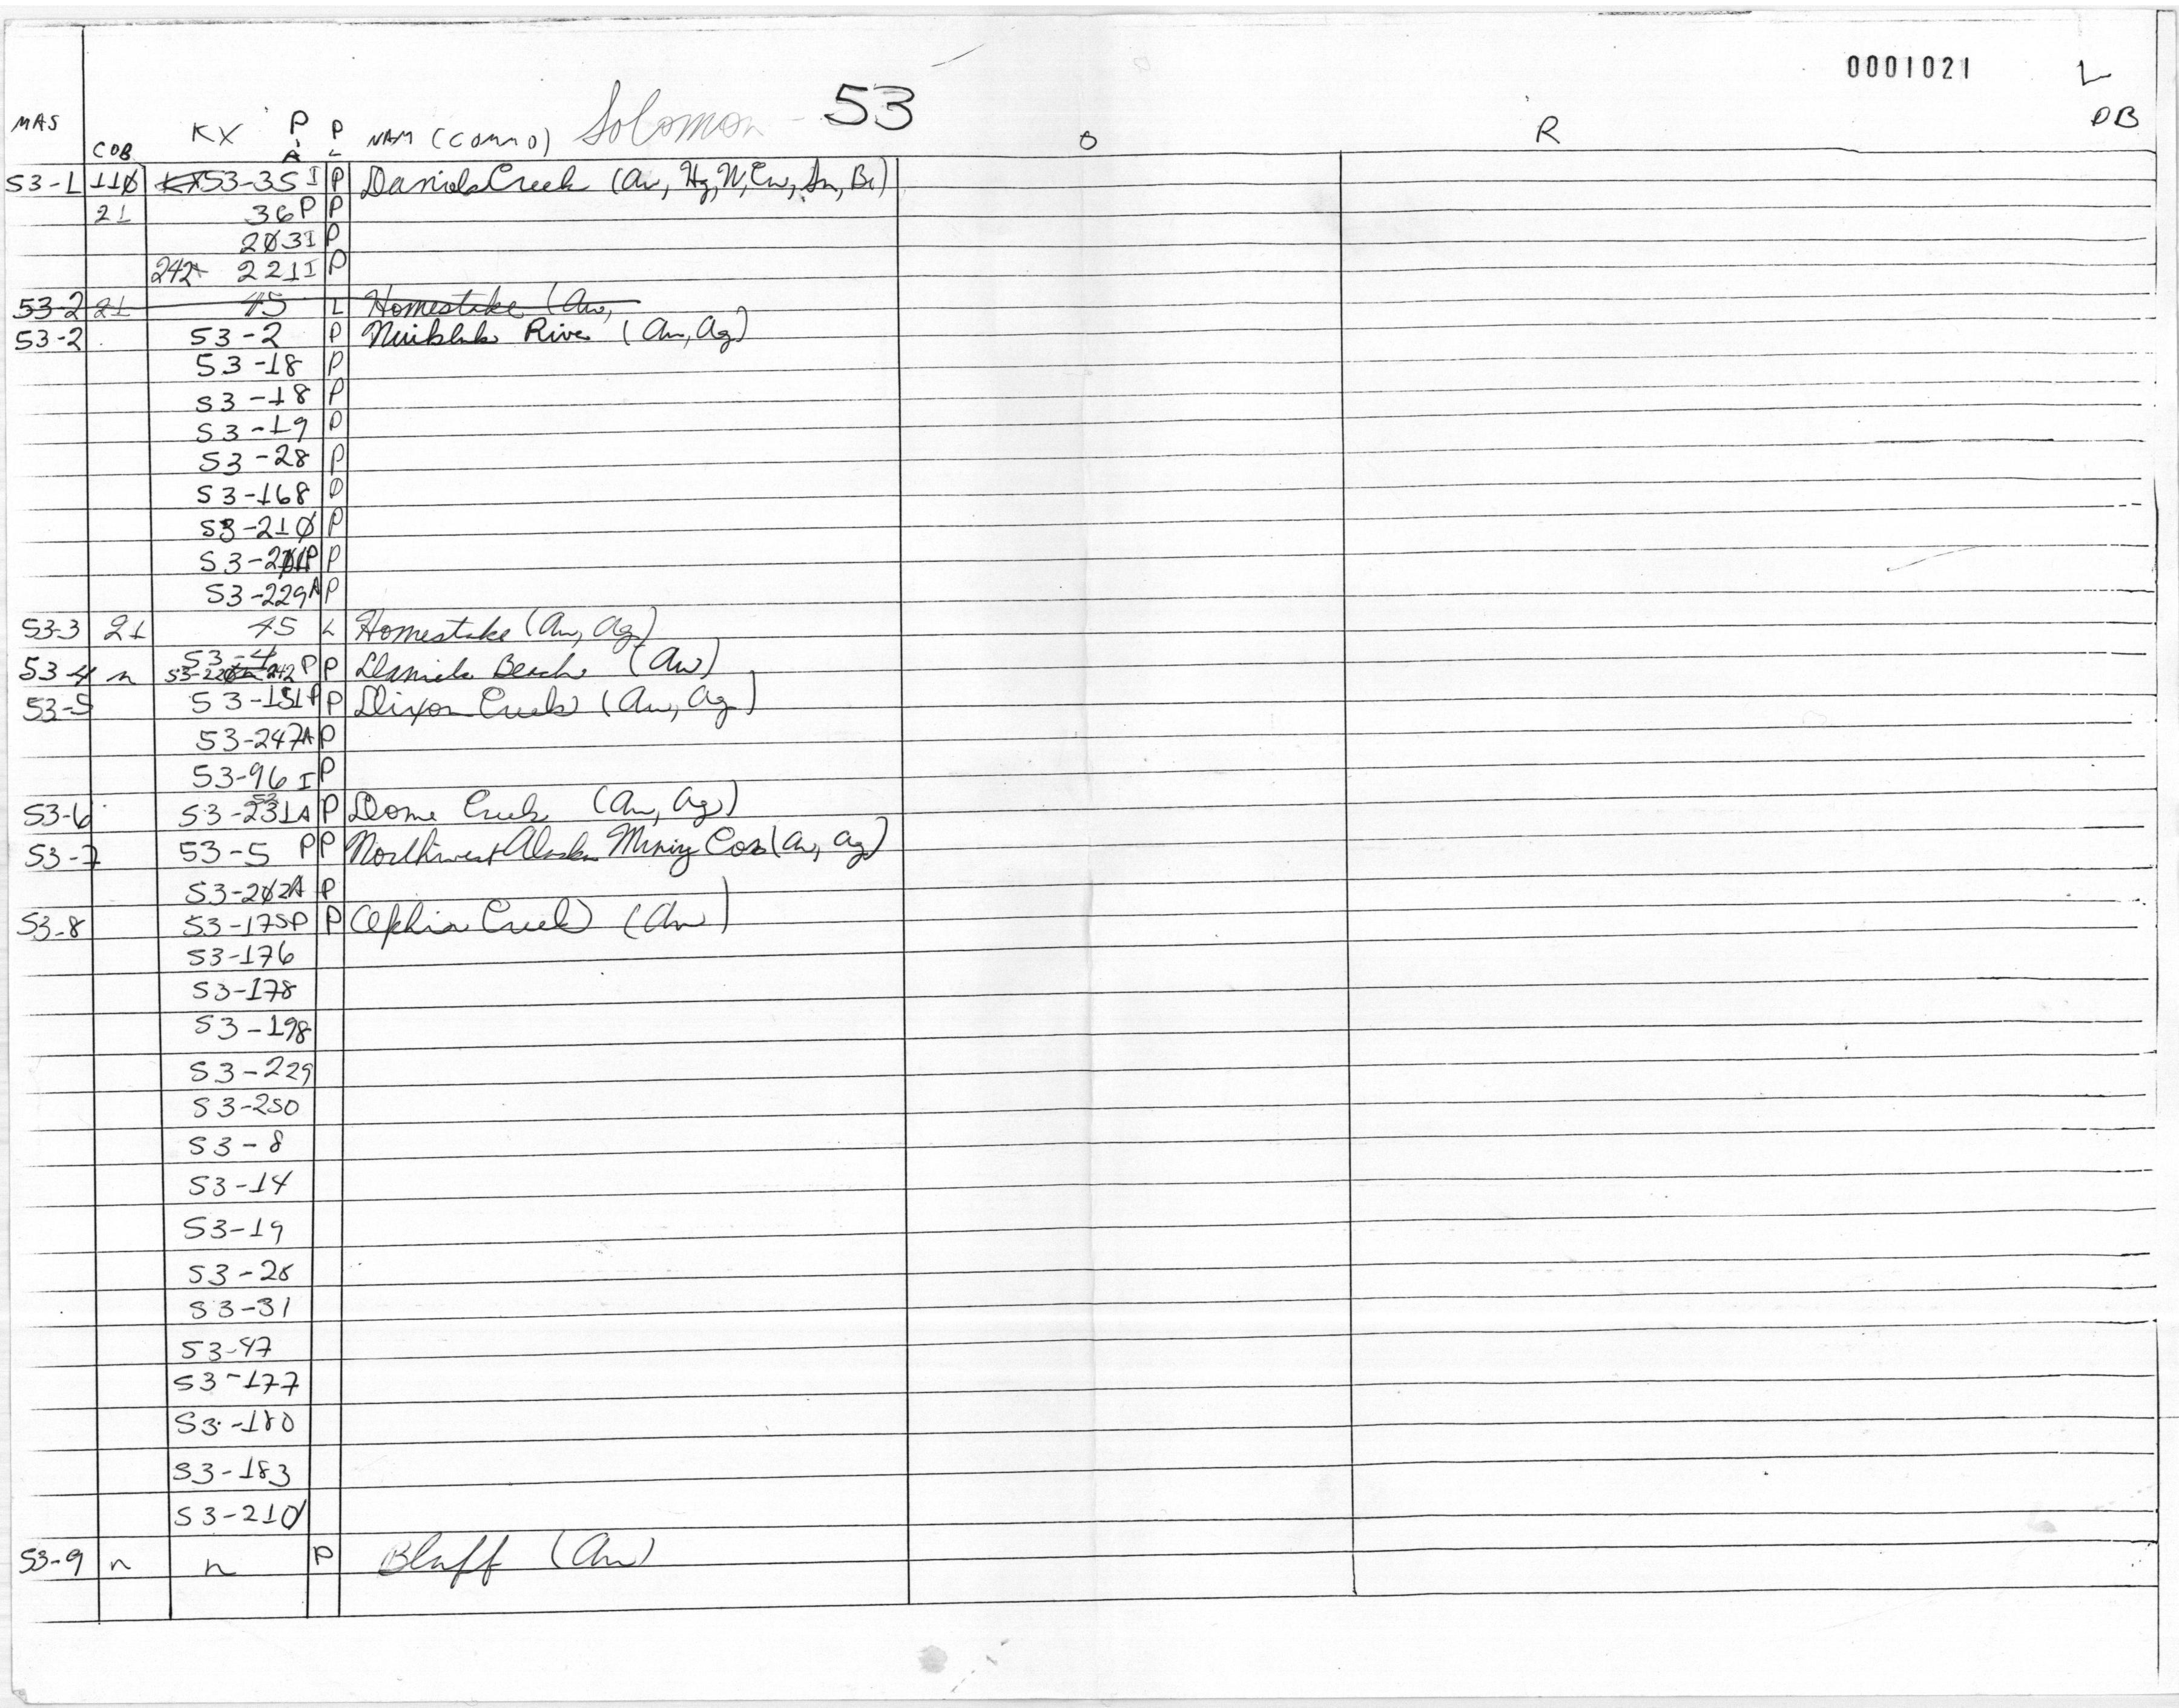 0001021 L
Solomon - 53
MAS COB KX P A P L NAM (COMMO) O R DB
53-1 110 KX53-35 I P Daniels Creek (Au, Hg, W, Cu, Sn, Bi)
21 36 P P
203 I P
242 221 I P
53-2 21 45 L Homestake (Au,
53-2 53-2 P Niukluk River (Au, Ag)
53-18 P
53-18 P
53-19 P
53-28 P
53-168 P
53-210 P
P P
53-229 A P
53-3 21 45 L Homestake (Au, Ag)
53-4
53-4 n 242 P P Daniels Beach (Au)
53-5 53-151 P P Dixon Creek (Au, Ag)
53-247 A P
53-96 I P
53-6 53-231 A P Dome Creek (Au, Ag)
53-7 53-5 P P Northwest Alaska Mining Cos (Au, Ag)
53-202 A P
53-8 53-175 P P Ophir Creek (Au)
53-176
53-178
53-198
53-229
53-250
53-8
53-14
53-19
53-28
53-31
53-47
53-177
53-180
53-183
53-210
53-9 n n P Bluff (Au)